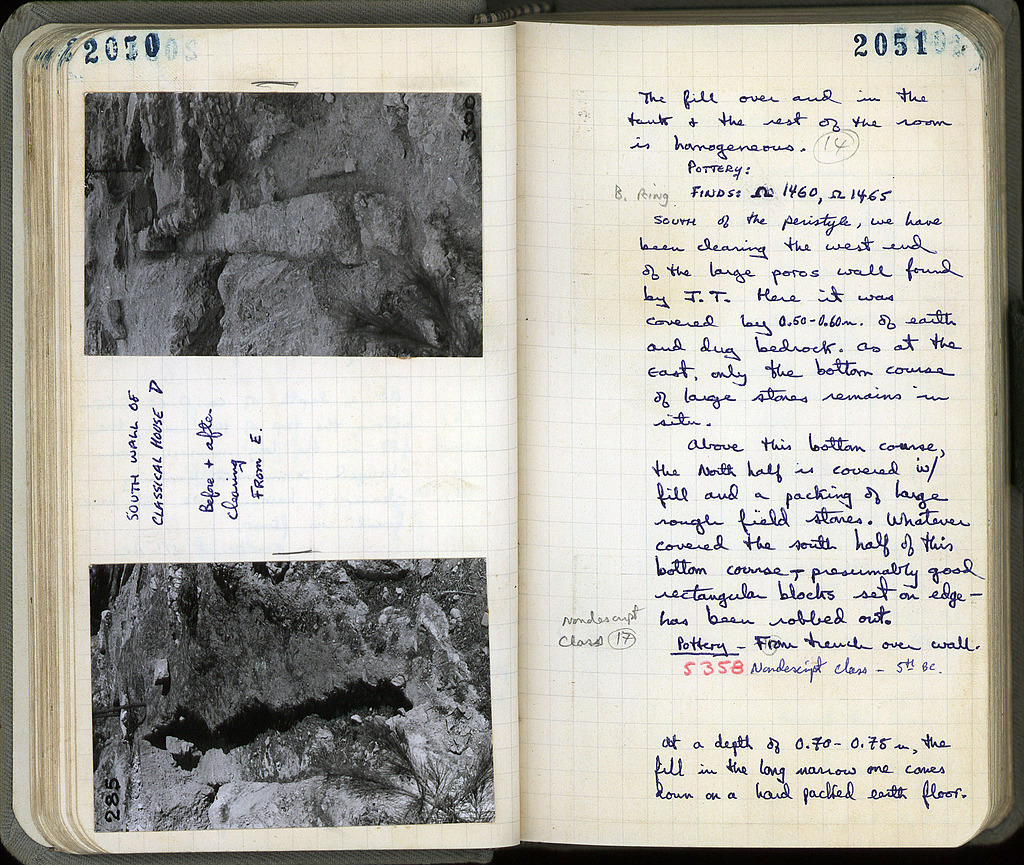 2050
300
SOUTH WALL OF
CLASSICAL HOUSE D
Before + after
clearing
FROM E.
285
2051
The fill over and in the
tank + the rest of the room
is homogeneous. 14
POTTERY:
B. Ring FINDS: Ω 1460, Ω 1465
South of the peristyle, we have
been clearing the west end
of the large poros wall found
by J.T. Here it was
covered by 0.50-0.60m. of earth
and dug bedrock. As at the
East, only the bottom course
of large stones remains in
situ.
Above this bottom course,
the North half is covered w/
fill and a packing of large
rough field stones. Whatever
covered the south half of this
bottom course - presumably good
rectangular blocks set on edge -
has been robbed out.
Nondescript
Class 17
Pottery - From trench over wall.
5358 Nondescript class - 5th BC.
At a depth of 0.70-0.75 m, the
fill in the long narrow one comes
down on a hard packed earth floor.